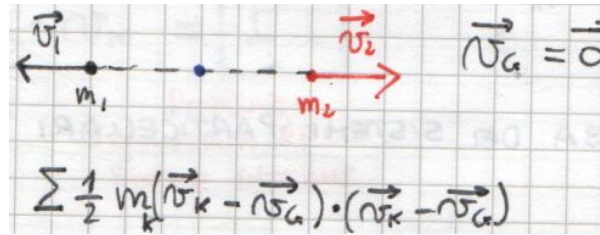 v₁→ v₂→ v_G→ = 0→
m₁ m₂
Σ 1/2 m_k(v_k→ - v_G→)·(v_k→ - v_G→)